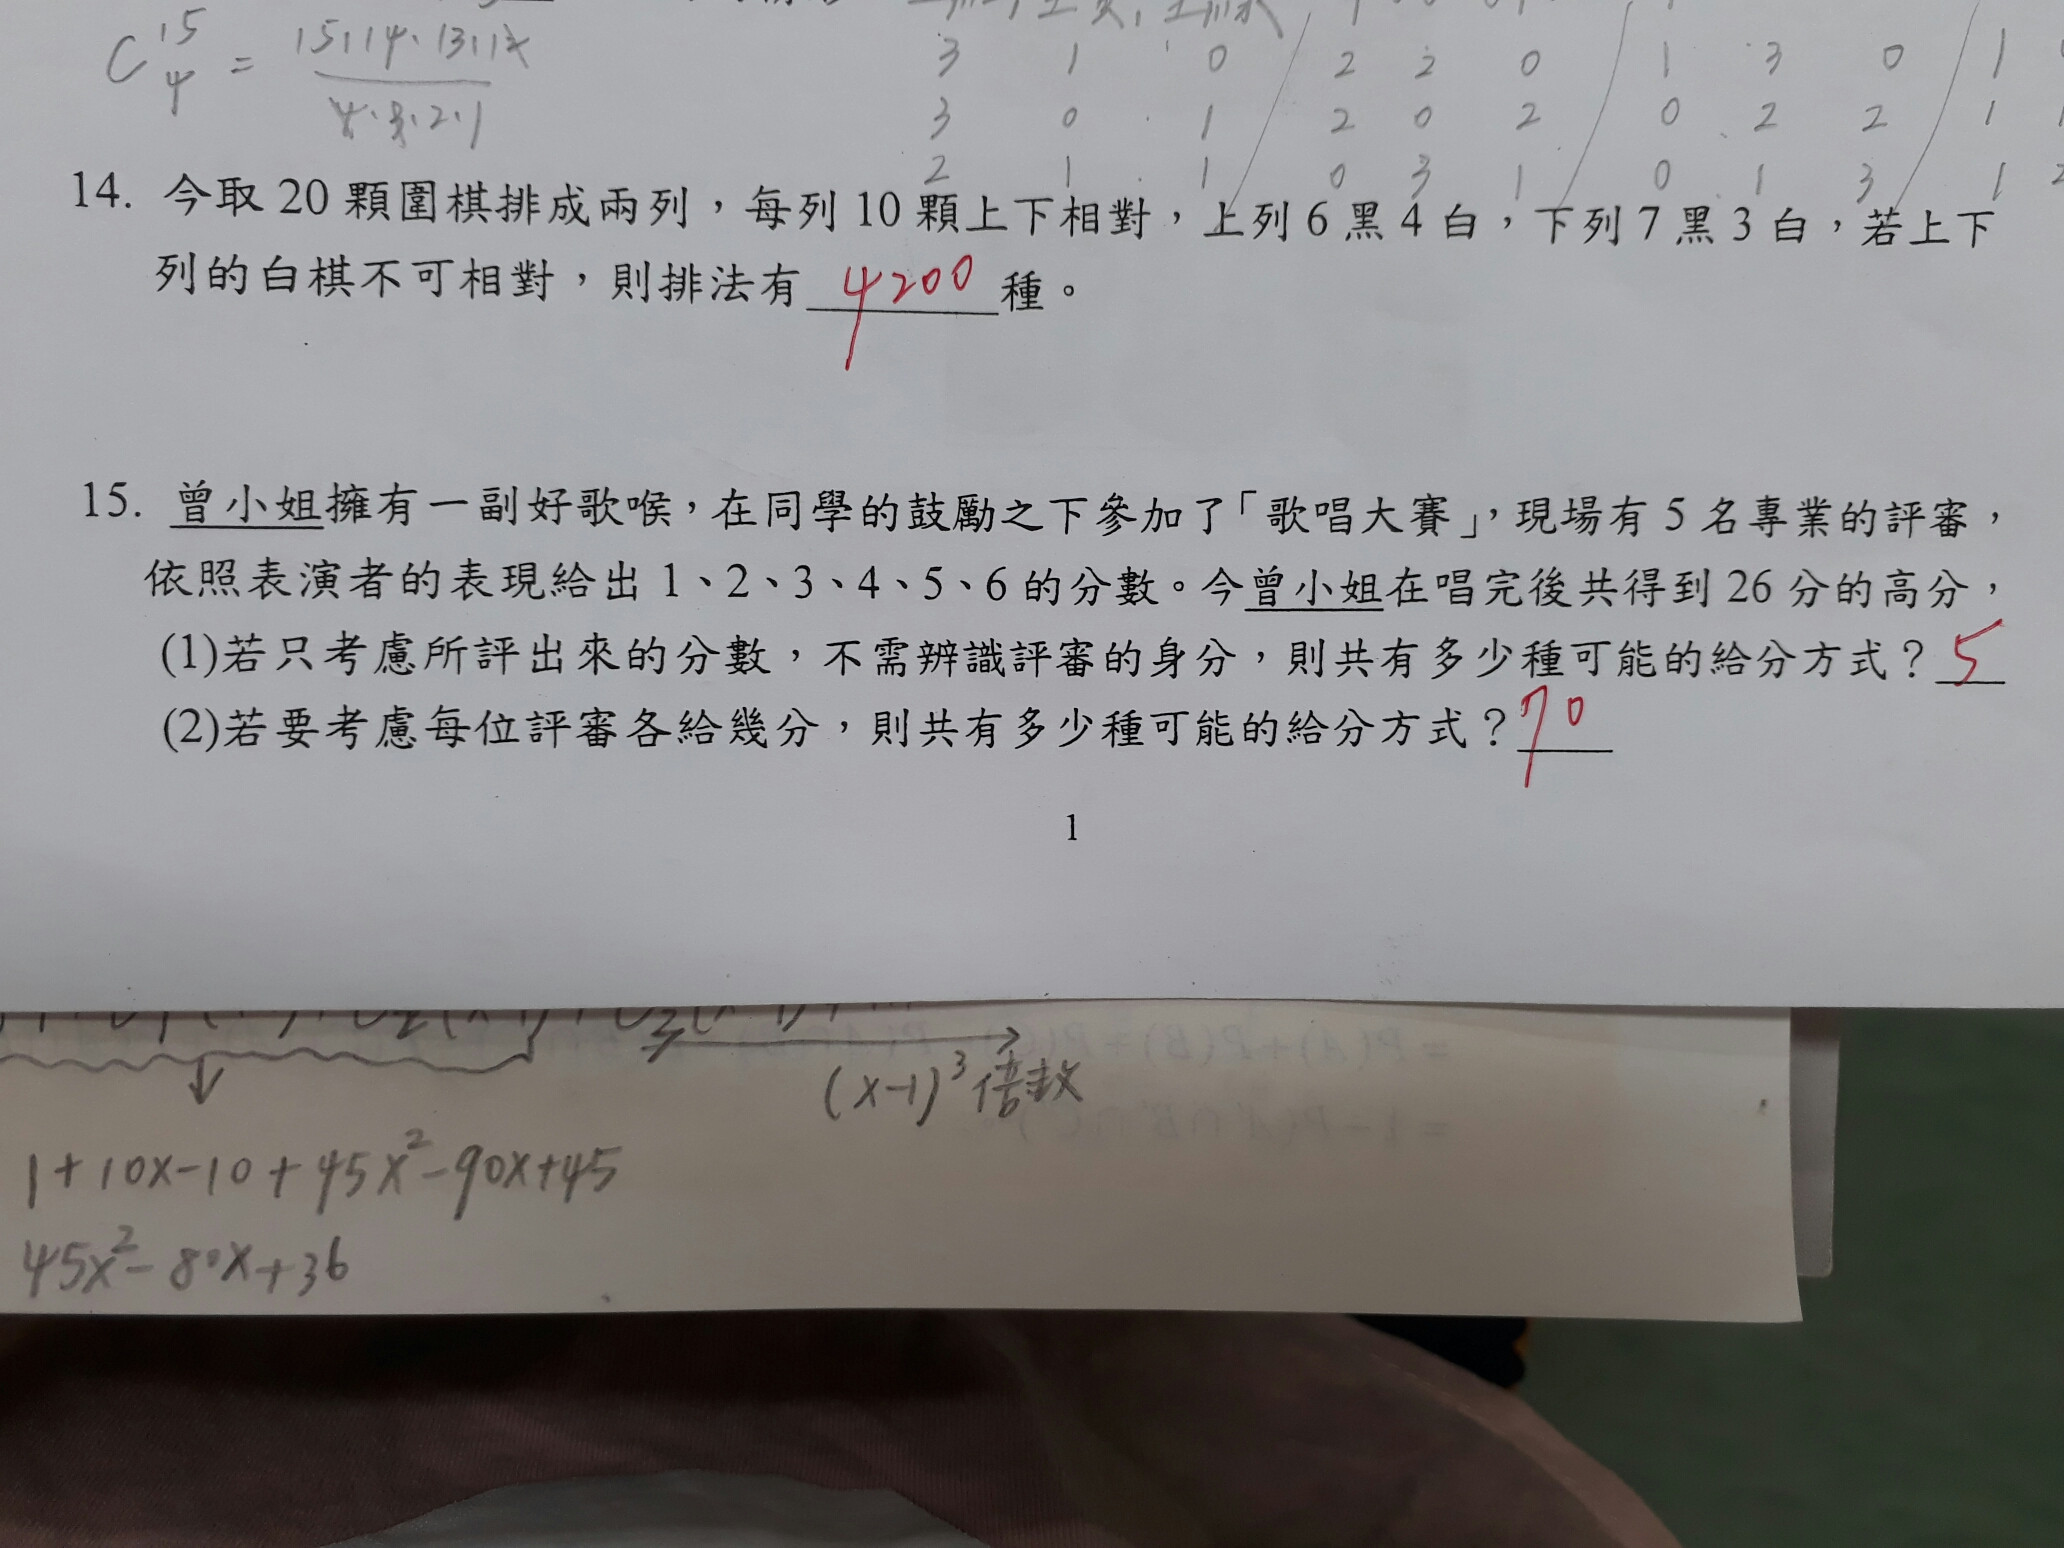 C 15 4 = 15.14.13.12
4.3.2.1
3 1 0 / 2 2 0 / 1 3 0 / 1
3 0 1 / 2 0 2 / 0 2 2 / 1
2 1 1 / 0 3 1 / 0 1 3 / 1 2
14. 今取 20 顆圍棋排成兩列，每列 10 顆上下相對，上列 6 黑 4 白，下列 7 黑 3 白，若上下
列的白棋不可相對，則排法有 4200 種。
15. 曾小姐擁有一副好歌喉，在同學的鼓勵之下參加了「歌唱大賽」，現場有 5 名專業的評審，
依照表演者的表現給出 1、2、3、4、5、6 的分數。今曾小姐在唱完後共得到 26 分的高分，
(1)若只考慮所評出來的分數，不需辨識評審的身分，則共有多少種可能的給分方式？5
(2)若要考慮每位評審各給幾分，則共有多少種可能的給分方式？70
1
(x-1)³倍数
1+10x-10+45x²-90x+45
45x²-80x+36